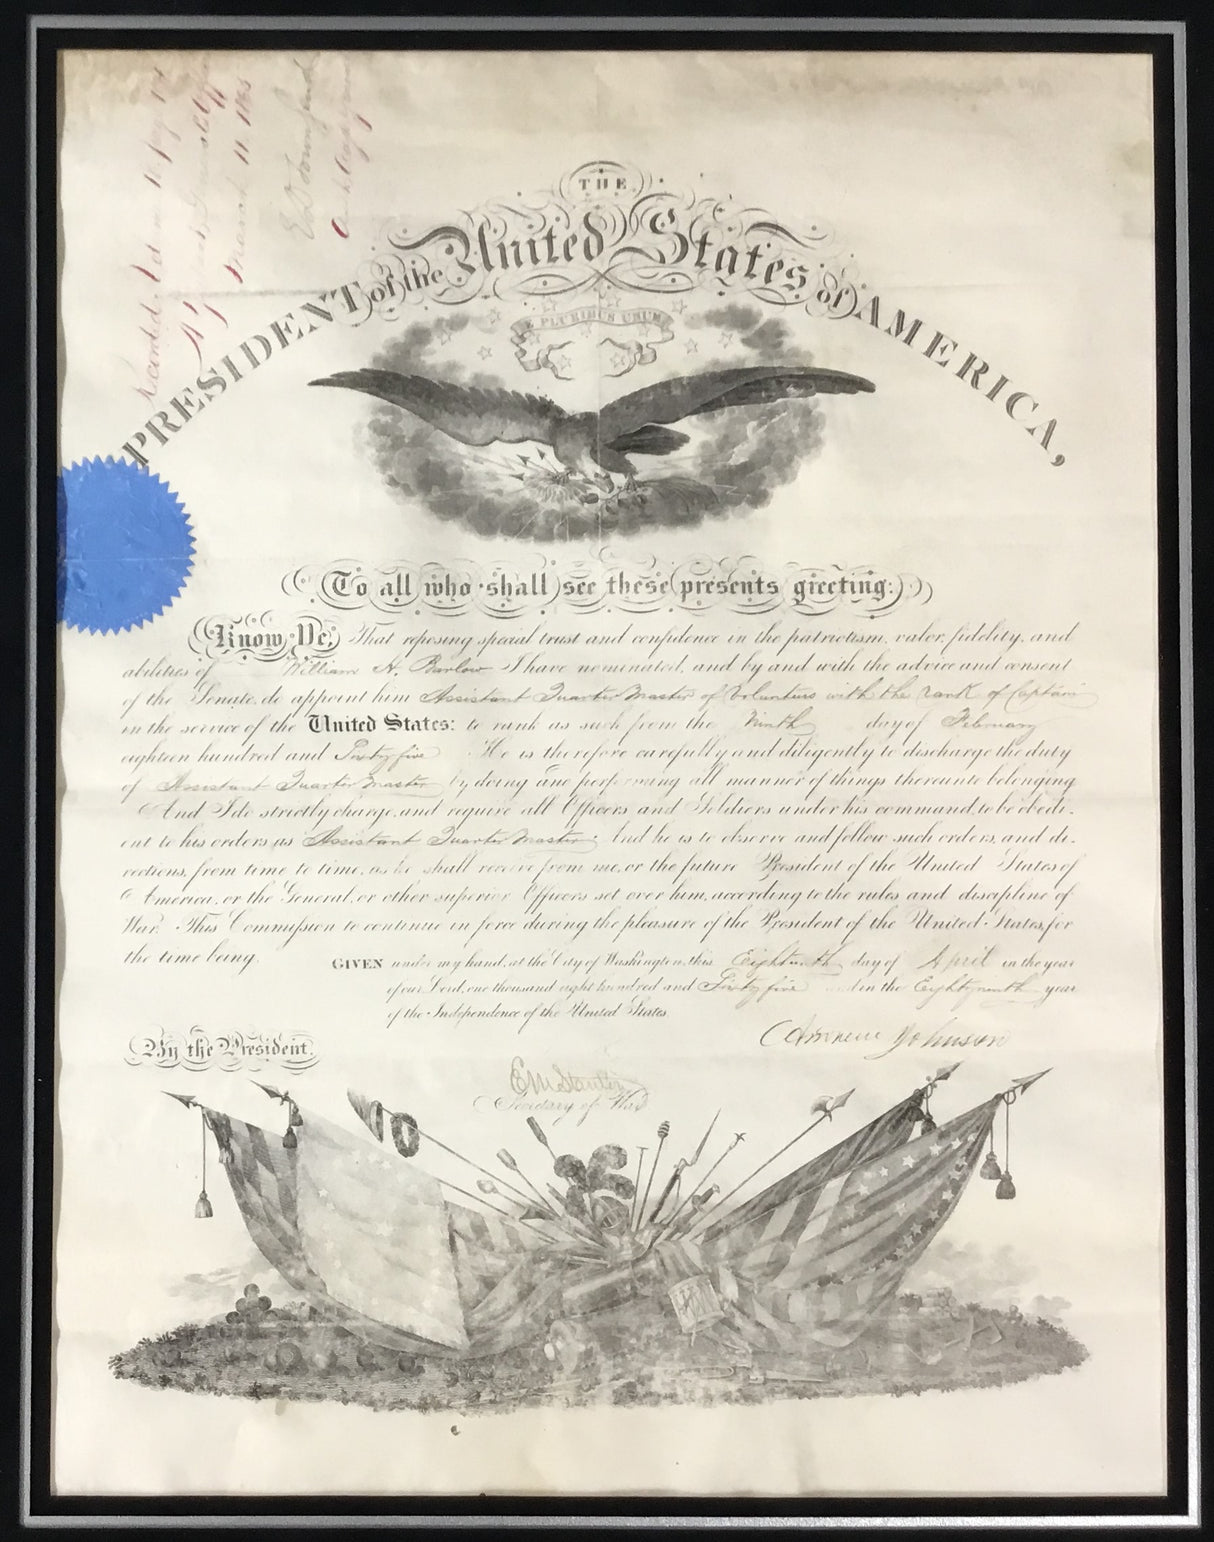 THE
PRESIDENT of the United States of AMERICA,
E PLURIBUS UNUM
To all who shall see these presents greeting:
Know Ye, That reposing special trust and confidence in the patriotism, valor, fidelity, and
abilities of William H. Barlow I have nominated, and by and with the advice and consent
of the Senate, do appoint him Assistant Quarter Master of Volunteers with the rank of Captain
in the service of the United States: to rank as such from the Ninth day of February
eighteen hundred and Sixty five He is therefore carefully and diligently to discharge the duty
of Assistant Quarter Master by doing and performing all manner of things thereunto belonging
And I do strictly charge, and require all Officers and Soldiers under his command, to be obedi-
ent to his orders as Assistant Quarter Master. And he is to observe and follow such orders, and di-
rections, from time to time, as he shall receive from me, or the future President of the United States of
America, or the General, or other superior Officers set over him, according to the rules and discipline of
War. This Commission to continue in force during the pleasure of the President of the United States, for
the time being.
GIVEN under my hand, at the City of Washington, this Eighteenth day of April in the year
of our Lord, one thousand eight hundred and Sixty five and in the Eighty ninth year
of the Independence of the United States.
Andrew Johnson
By the President.
E M Stanton
Secretary of War
March 11. 1865
E D Townsend